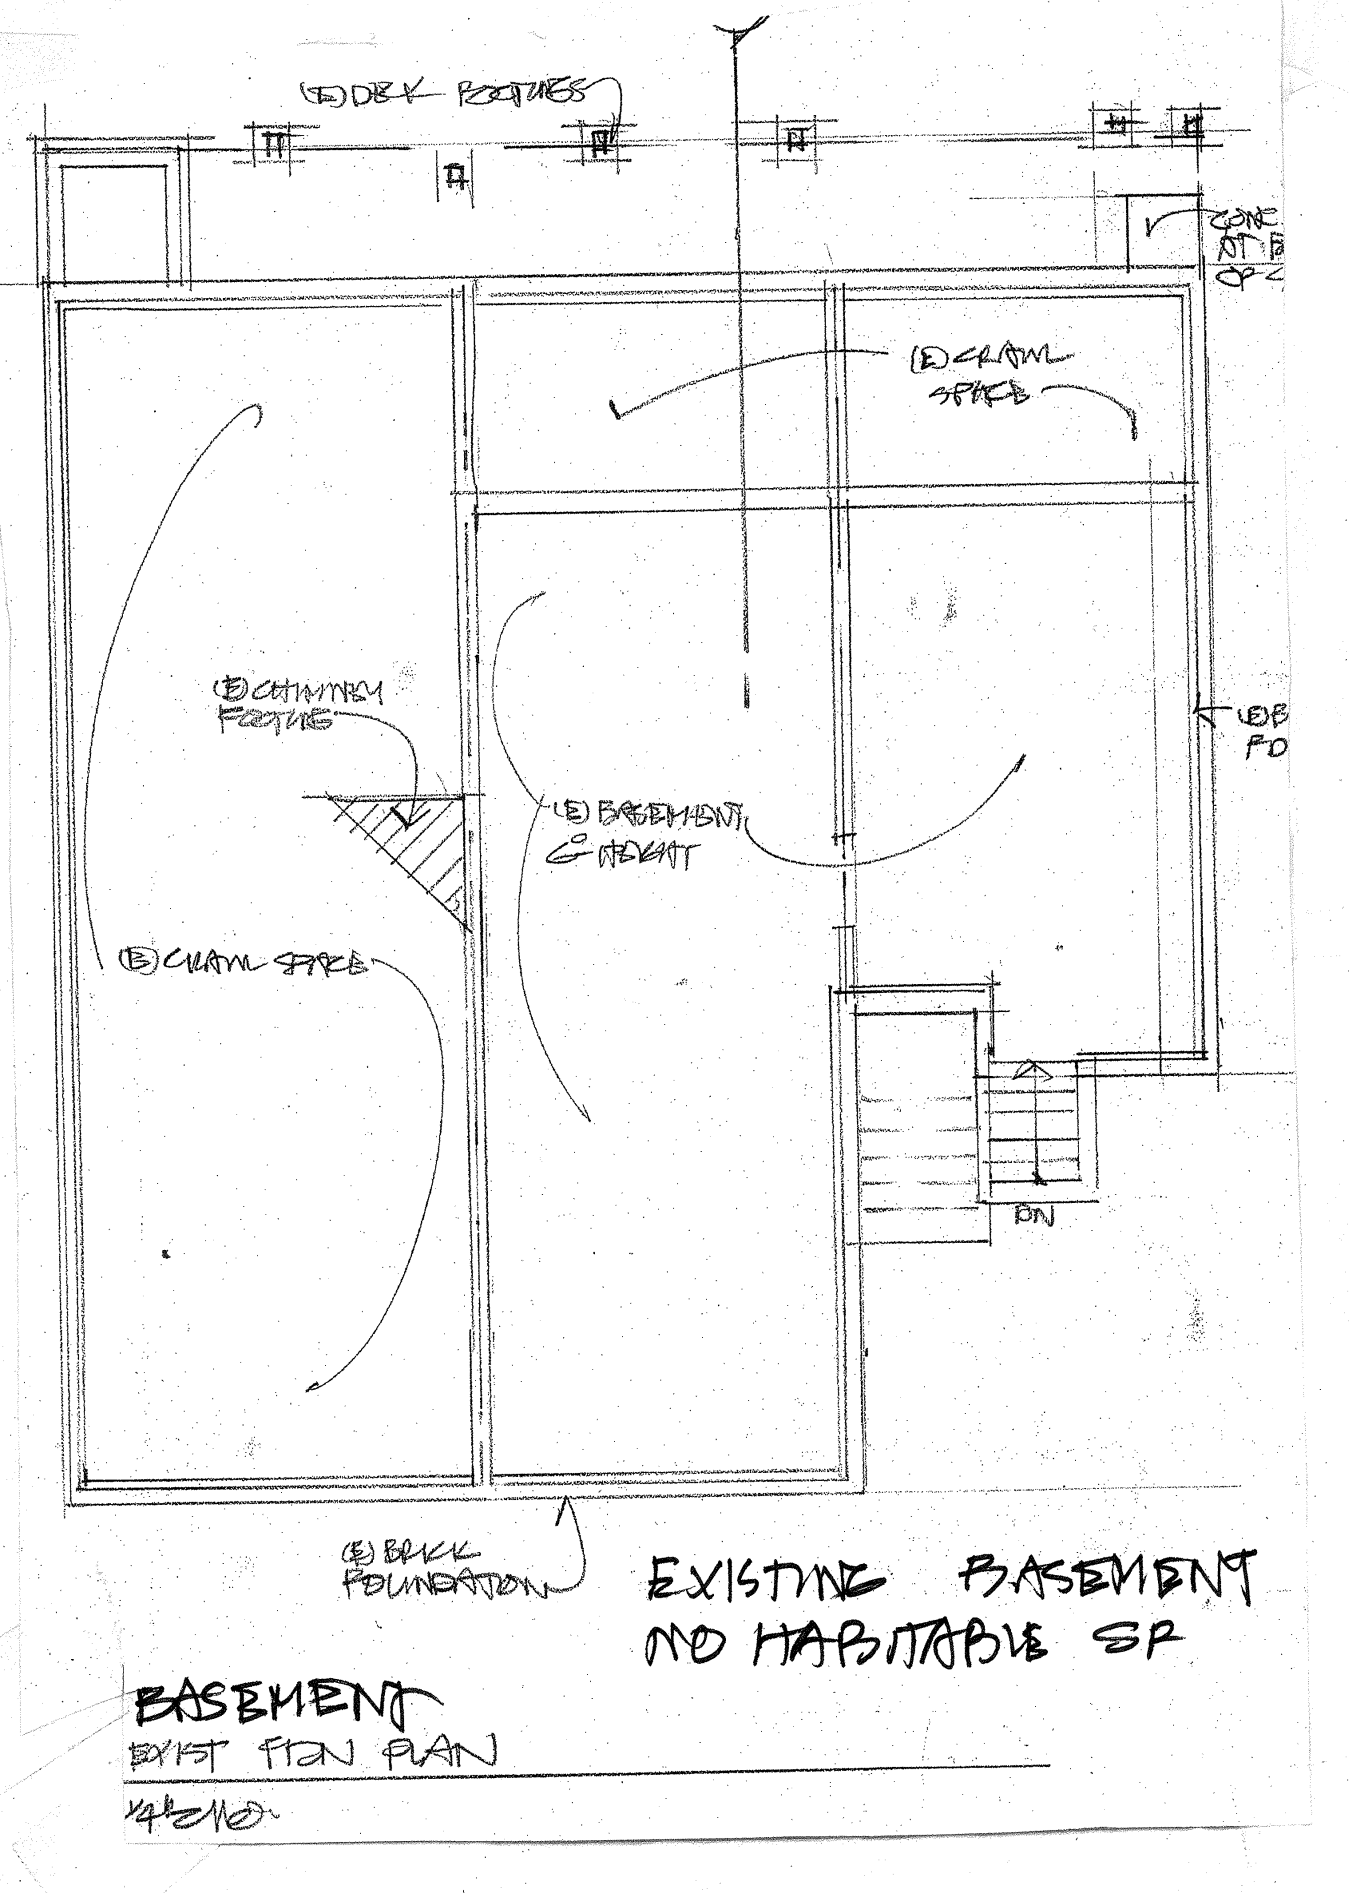 (E) DEK FOOTINGS
CONC
AT
(E) CRAWL
SPACE
(E) CHIMNEY
FOOTING
(E) B
FD
(E) BASEMENT
HEIGHT
(E) CRAWL SPACE
DN
(E) BRICK
FOUNDATION
EXISTING BASEMENT
NO HABITABLE SF
BASEMENT
EXIST FDN PLAN